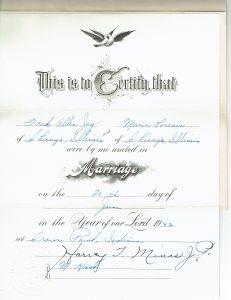 This is to Certify, that
Fred Allen Jay & Marie
of Chicago, Illinois of Chicago, Illinois
were by me united in
Marriage
on the day of
June
in the Year of our Lord 19
at Crown Point, Indiana
Harry T. Minas J.P.